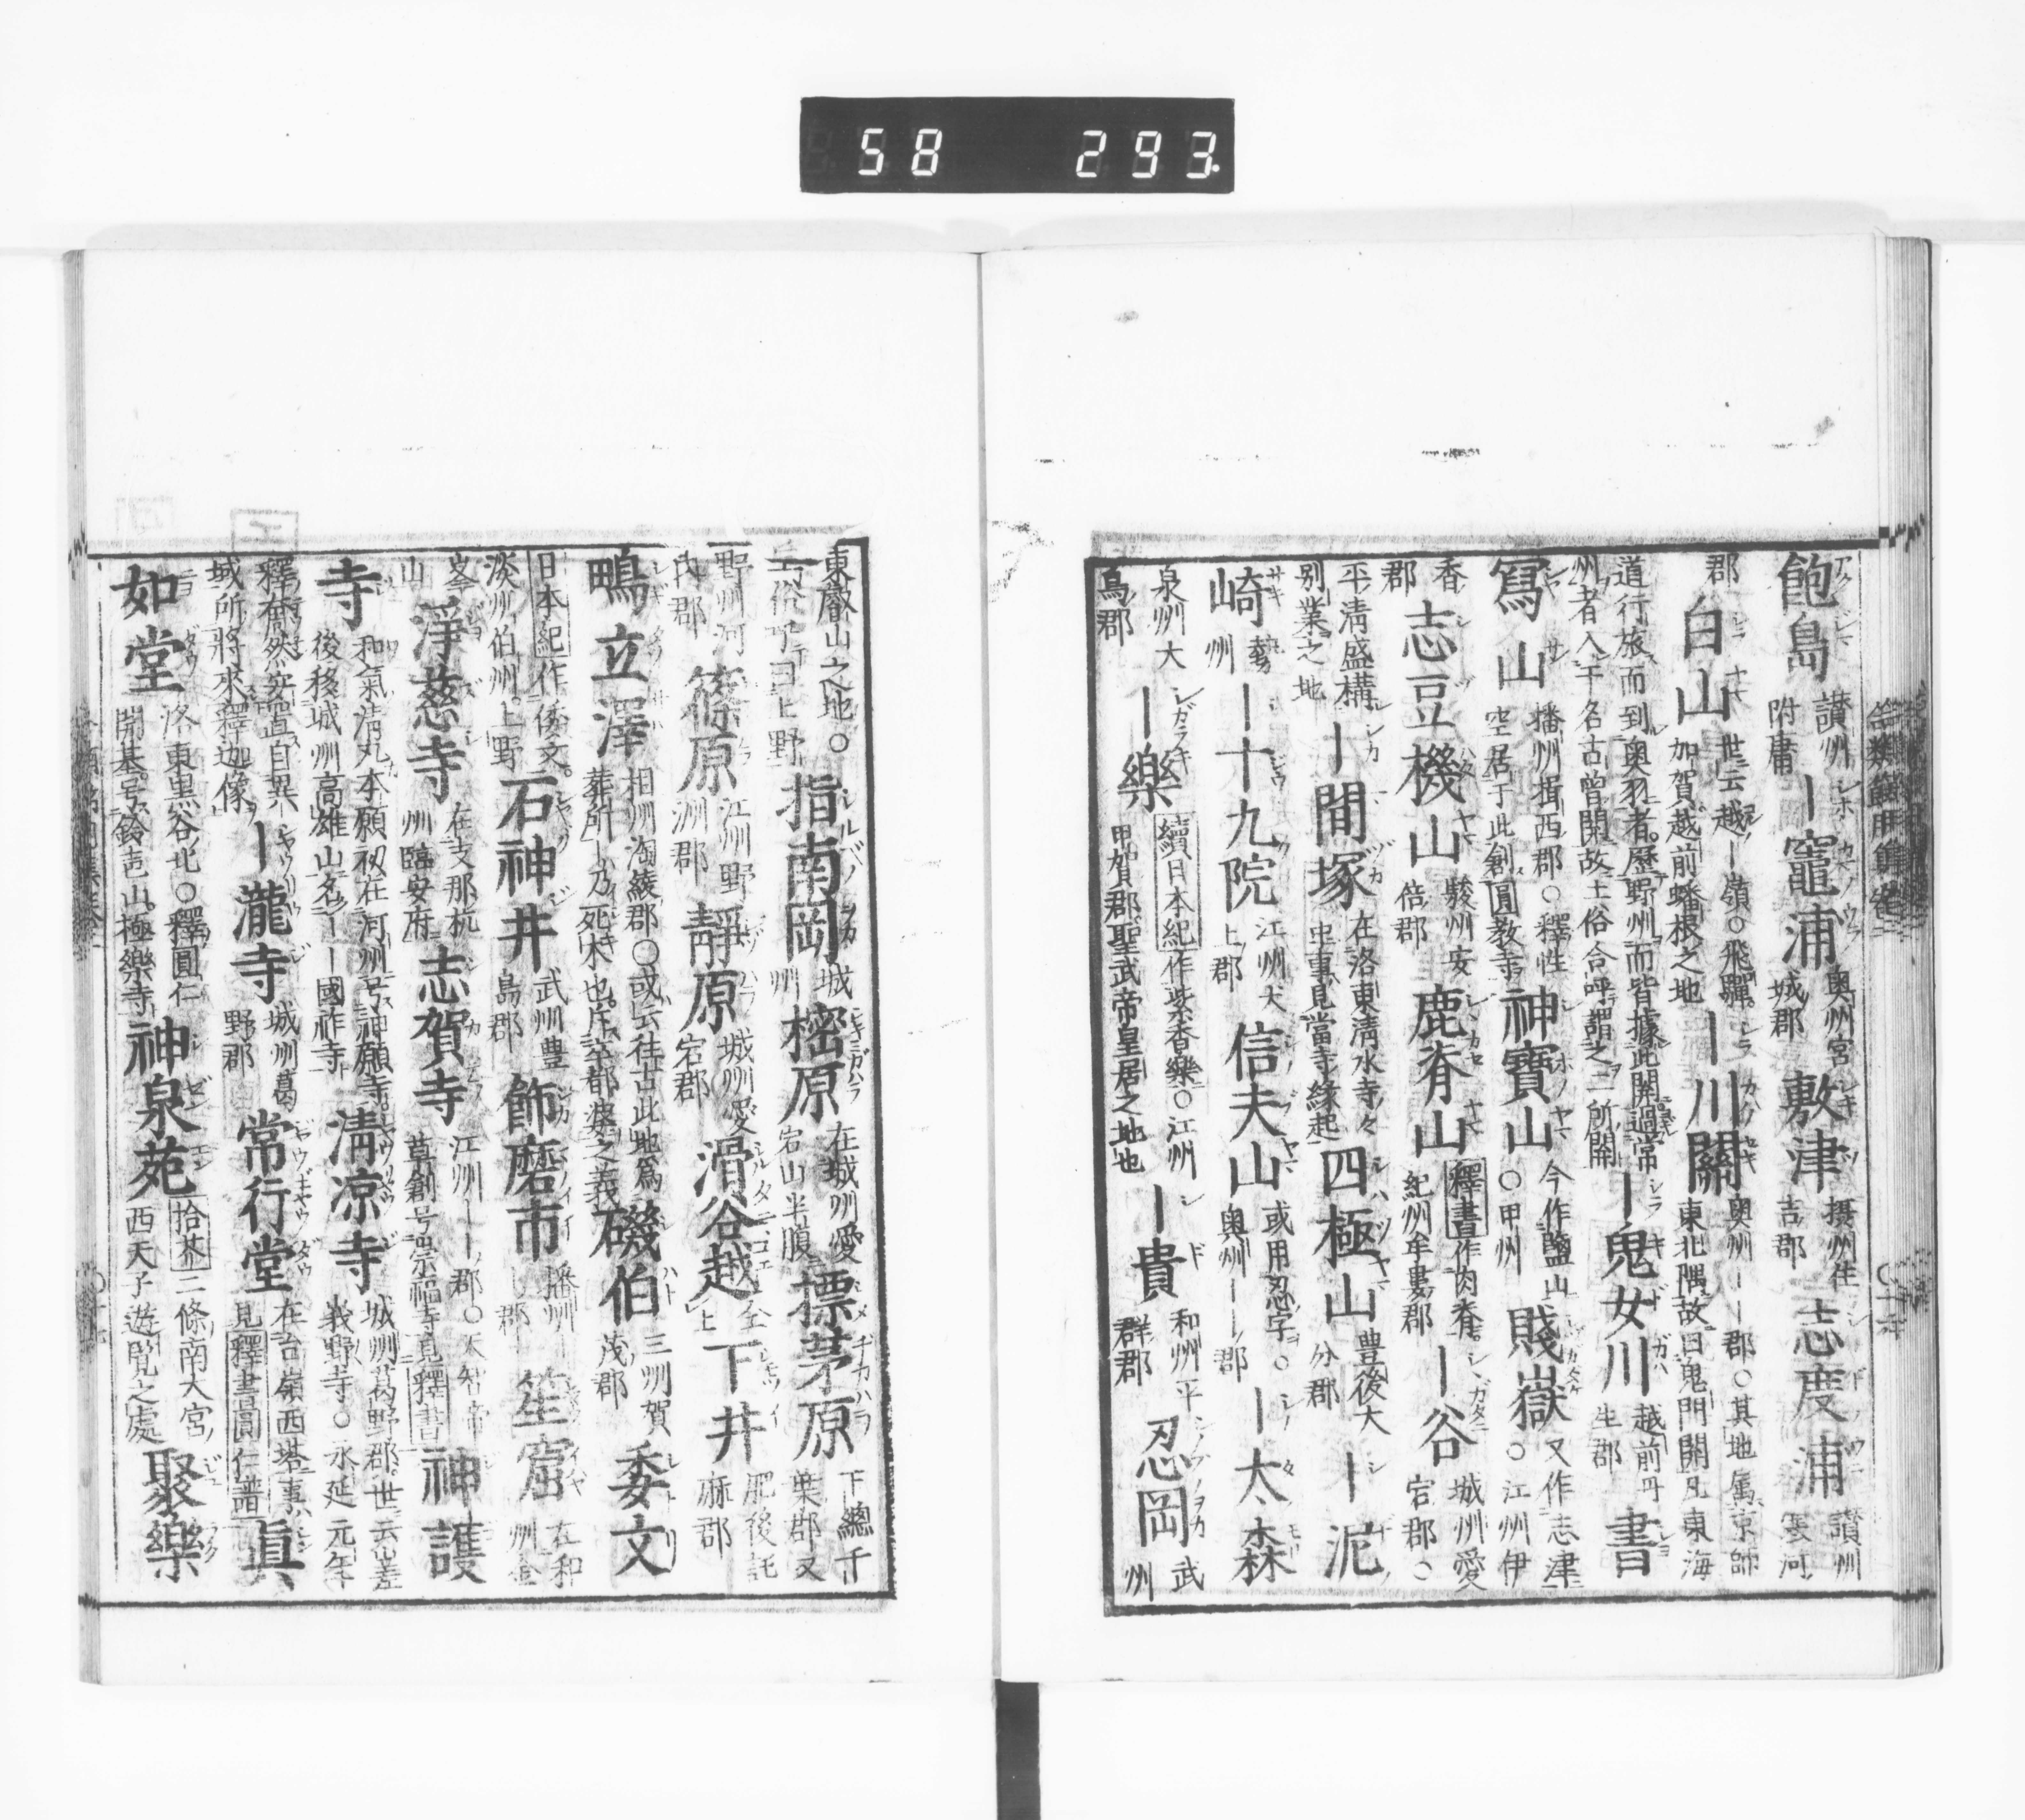 58 293
飽島 讃州附庸 ー竈浦 奥州宮城郡 敷津 摂州住吉郡 志度浦 讃州寒河
郡 白山 世云越ー嶺〇飛驒加賀越前蟠根之地 ー川關 奥州ーー郡〇其地属京師東北隅故曰鬼門關凡東海
道行旅而到奥羽者歷野州而皆據此關過常州者入干名古曽關故土俗合呼謂之二所關 ー鬼女川 越前丹生郡 書
寫山 播州揖西郡〇釋性空居于此創圓教寺 神寶山 今作鹽山〇甲州 賤嶽 又作志津〇江州伊
香郡 志豆機山 駿州安倍郡 鹿脊山 釋書作肉脊紀州牟婁郡 ー谷 城州愛宕郡〇
平清盛構別業之地 ー間塚 在洛東清水寺々中事見當寺緣起 四極山 豊後大分郡 ー泥
崎 勢州 ー十九院 江州犬上郡 信夫山 或用忍字〇奥州ーー郡 ー太森
泉州大鳥郡 ー樂 續日本紀作紫香樂〇江州甲賀郡聖武帝皇居之地也 ー貴 和州平群郡 忍岡 武州
東叡山之地〇土俗丁曰上野 指南岡 城州 樒原 在城州愛宕山半腹 摽茅原 下總千葉郡又
野州河内郡 篠原 江州野洲郡 靜原 城州愛宕郡 滑谷越 仝上 下井 肥後託麻郡
鴫立澤 相州淘綾郡〇或云往古此地爲葬所ー乃死木也斥卒都婆之義 磯伯 三州賀茂郡 委文
日本紀作倭文淡州伯州上野 石神井 武州豊島郡 飾磨市 播州ーー郡 笙窟 在和州金
峯山 淨慈寺 在支那杭州臨安府 志賀寺 江州ーー郡〇天智帝草創号崇福寺見釋書 神護
寺 和氣清丸本願初在河州号神願寺後移城州高雄山名ーー國祚寺 清凉寺 城州葛野郡世云嵯峨野寺〇永延元年
釋奝然 直自異域所將來釋迦像 ー瀧寺 城州葛野郡 常行堂 在台嶺西塔事見釋書圓仁譜 眞
如堂 洛東黒谷北〇釋圓仁開基号鈴声山極樂寺 神泉苑 拾芥二條南大宮西天子遊覧之處 聚樂